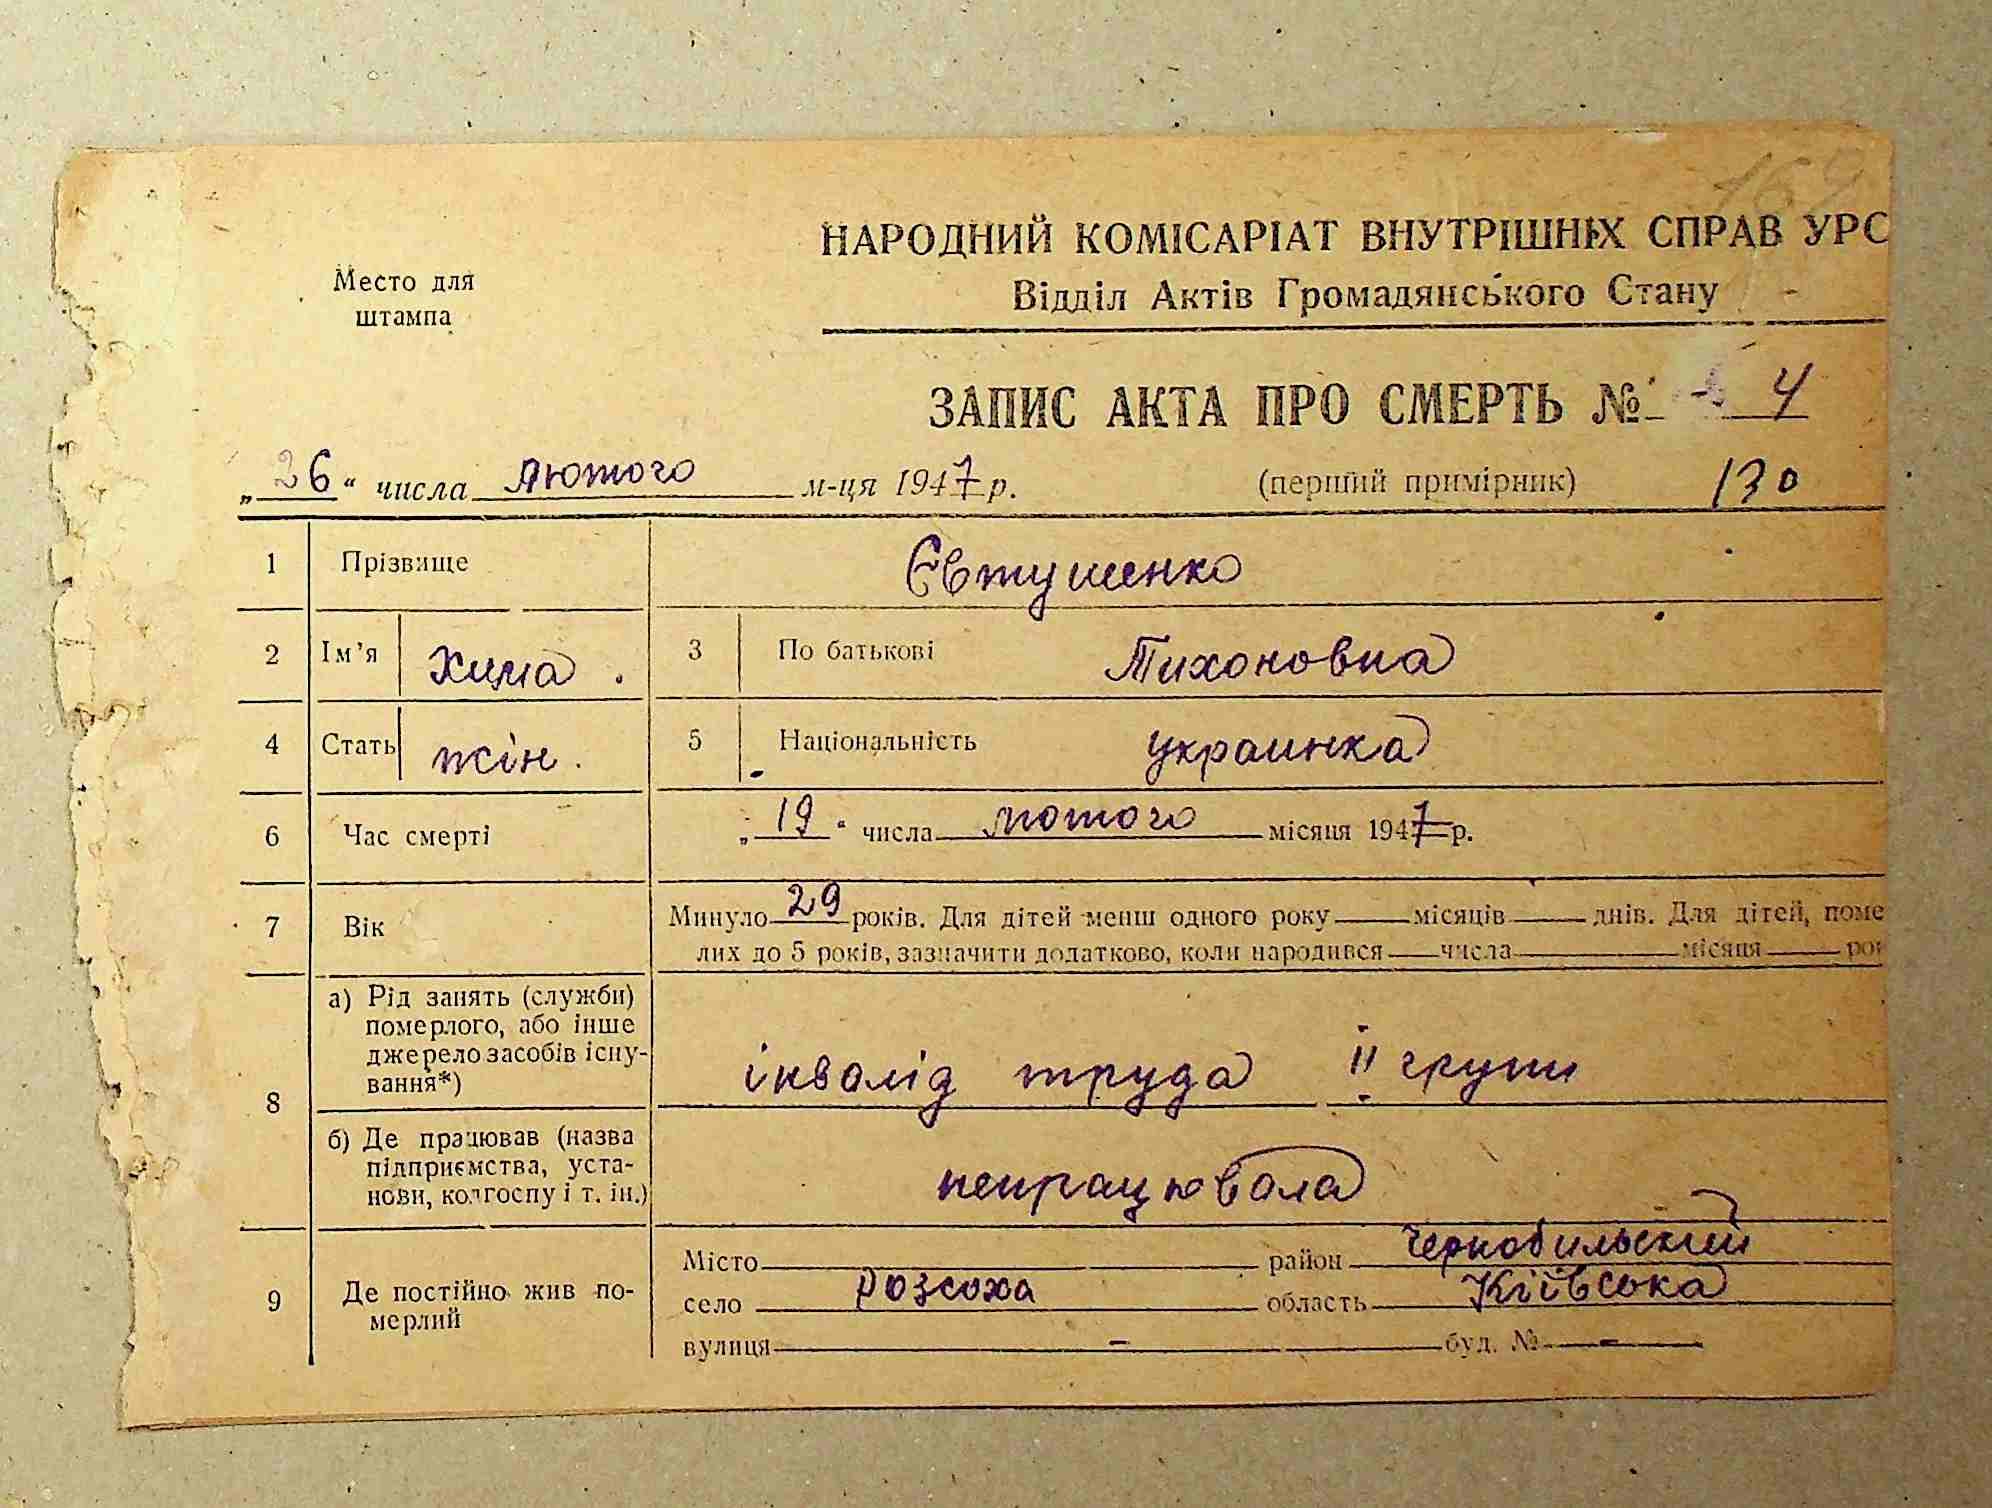 169
НАРОДНИЙ КОМІСАРІАТ ВНУТРІШНІХ СПРАВ УРС
Место для
штампа
Відділ Актів Громадянського Стану
ЗАПИС АКТА ПРО СМЕРТЬ № 4
„26“ числа лютого м-ця 1947 р. (перший примірник) 130
1 Прізвище Євтушенко
2 Ім’я Хима. 3 По батькові Тихоновна
4 Стать жін. 5 Національність украинка
6 Час смерті „19“ числа лютого місяця 1947 р.
7 Вік Минуло 29 років. Для дітей менш одного року місяців днів. Для дітей, поме
лих до 5 років, зазначити додатково, коли народився числа місяця рок
8 а) Рід занять (служби)
померлого, або інше
джерело засобів існу-
вання*)
інвалід труда II групи
б) Де працював (назва
підприємства, уста-
нови, колгоспу і т. ін.)
непрацювала
9 Де постійно жив по-
мерлий
Місто район Чернобильский
село Розсоха область Київська
вулиця - буд. № -